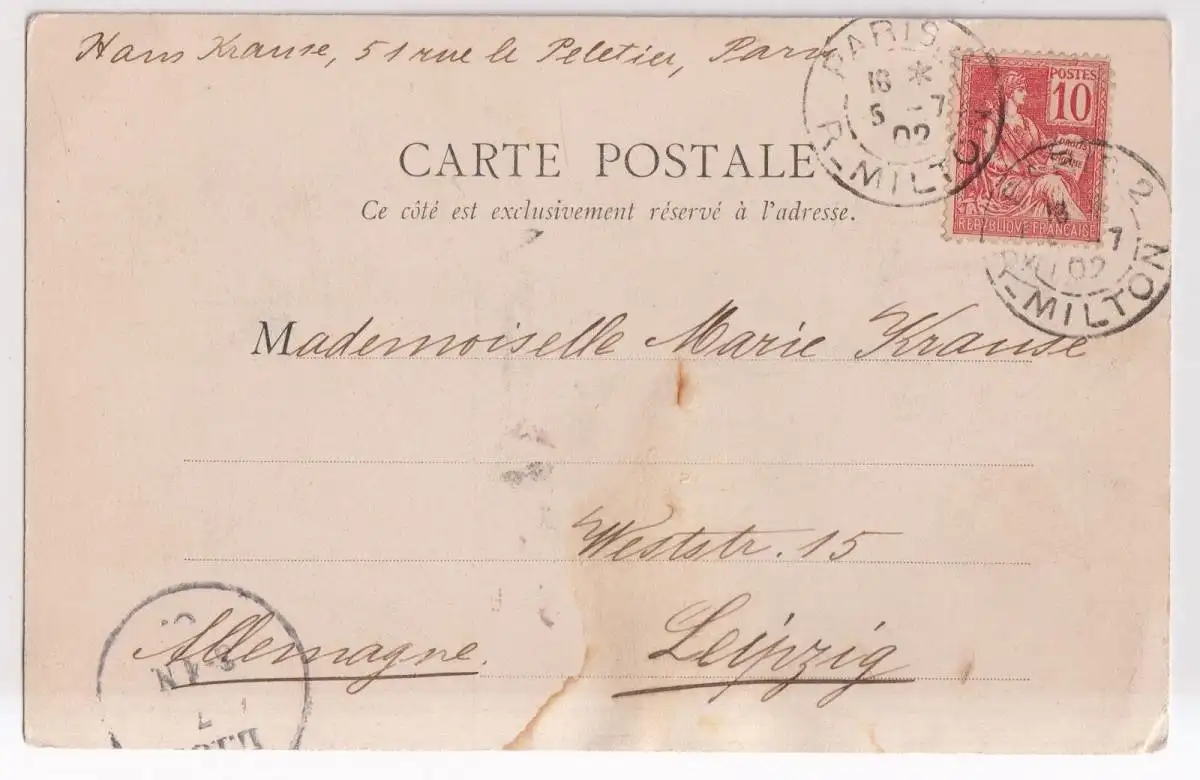 Hans Krause, 51 rue le Peletier, Paris
PARIS
18 *
5 -7
02
R-MILTON
POSTES
10
REPUBLIQUE FRANÇAISE
2
18
7
02
R-MILTON
CARTE POSTALE
Ce côté est exclusivement réservé à l'adresse.
Mademoiselle Marie Krause
Weststr. 15
Allemagne. Leipzig